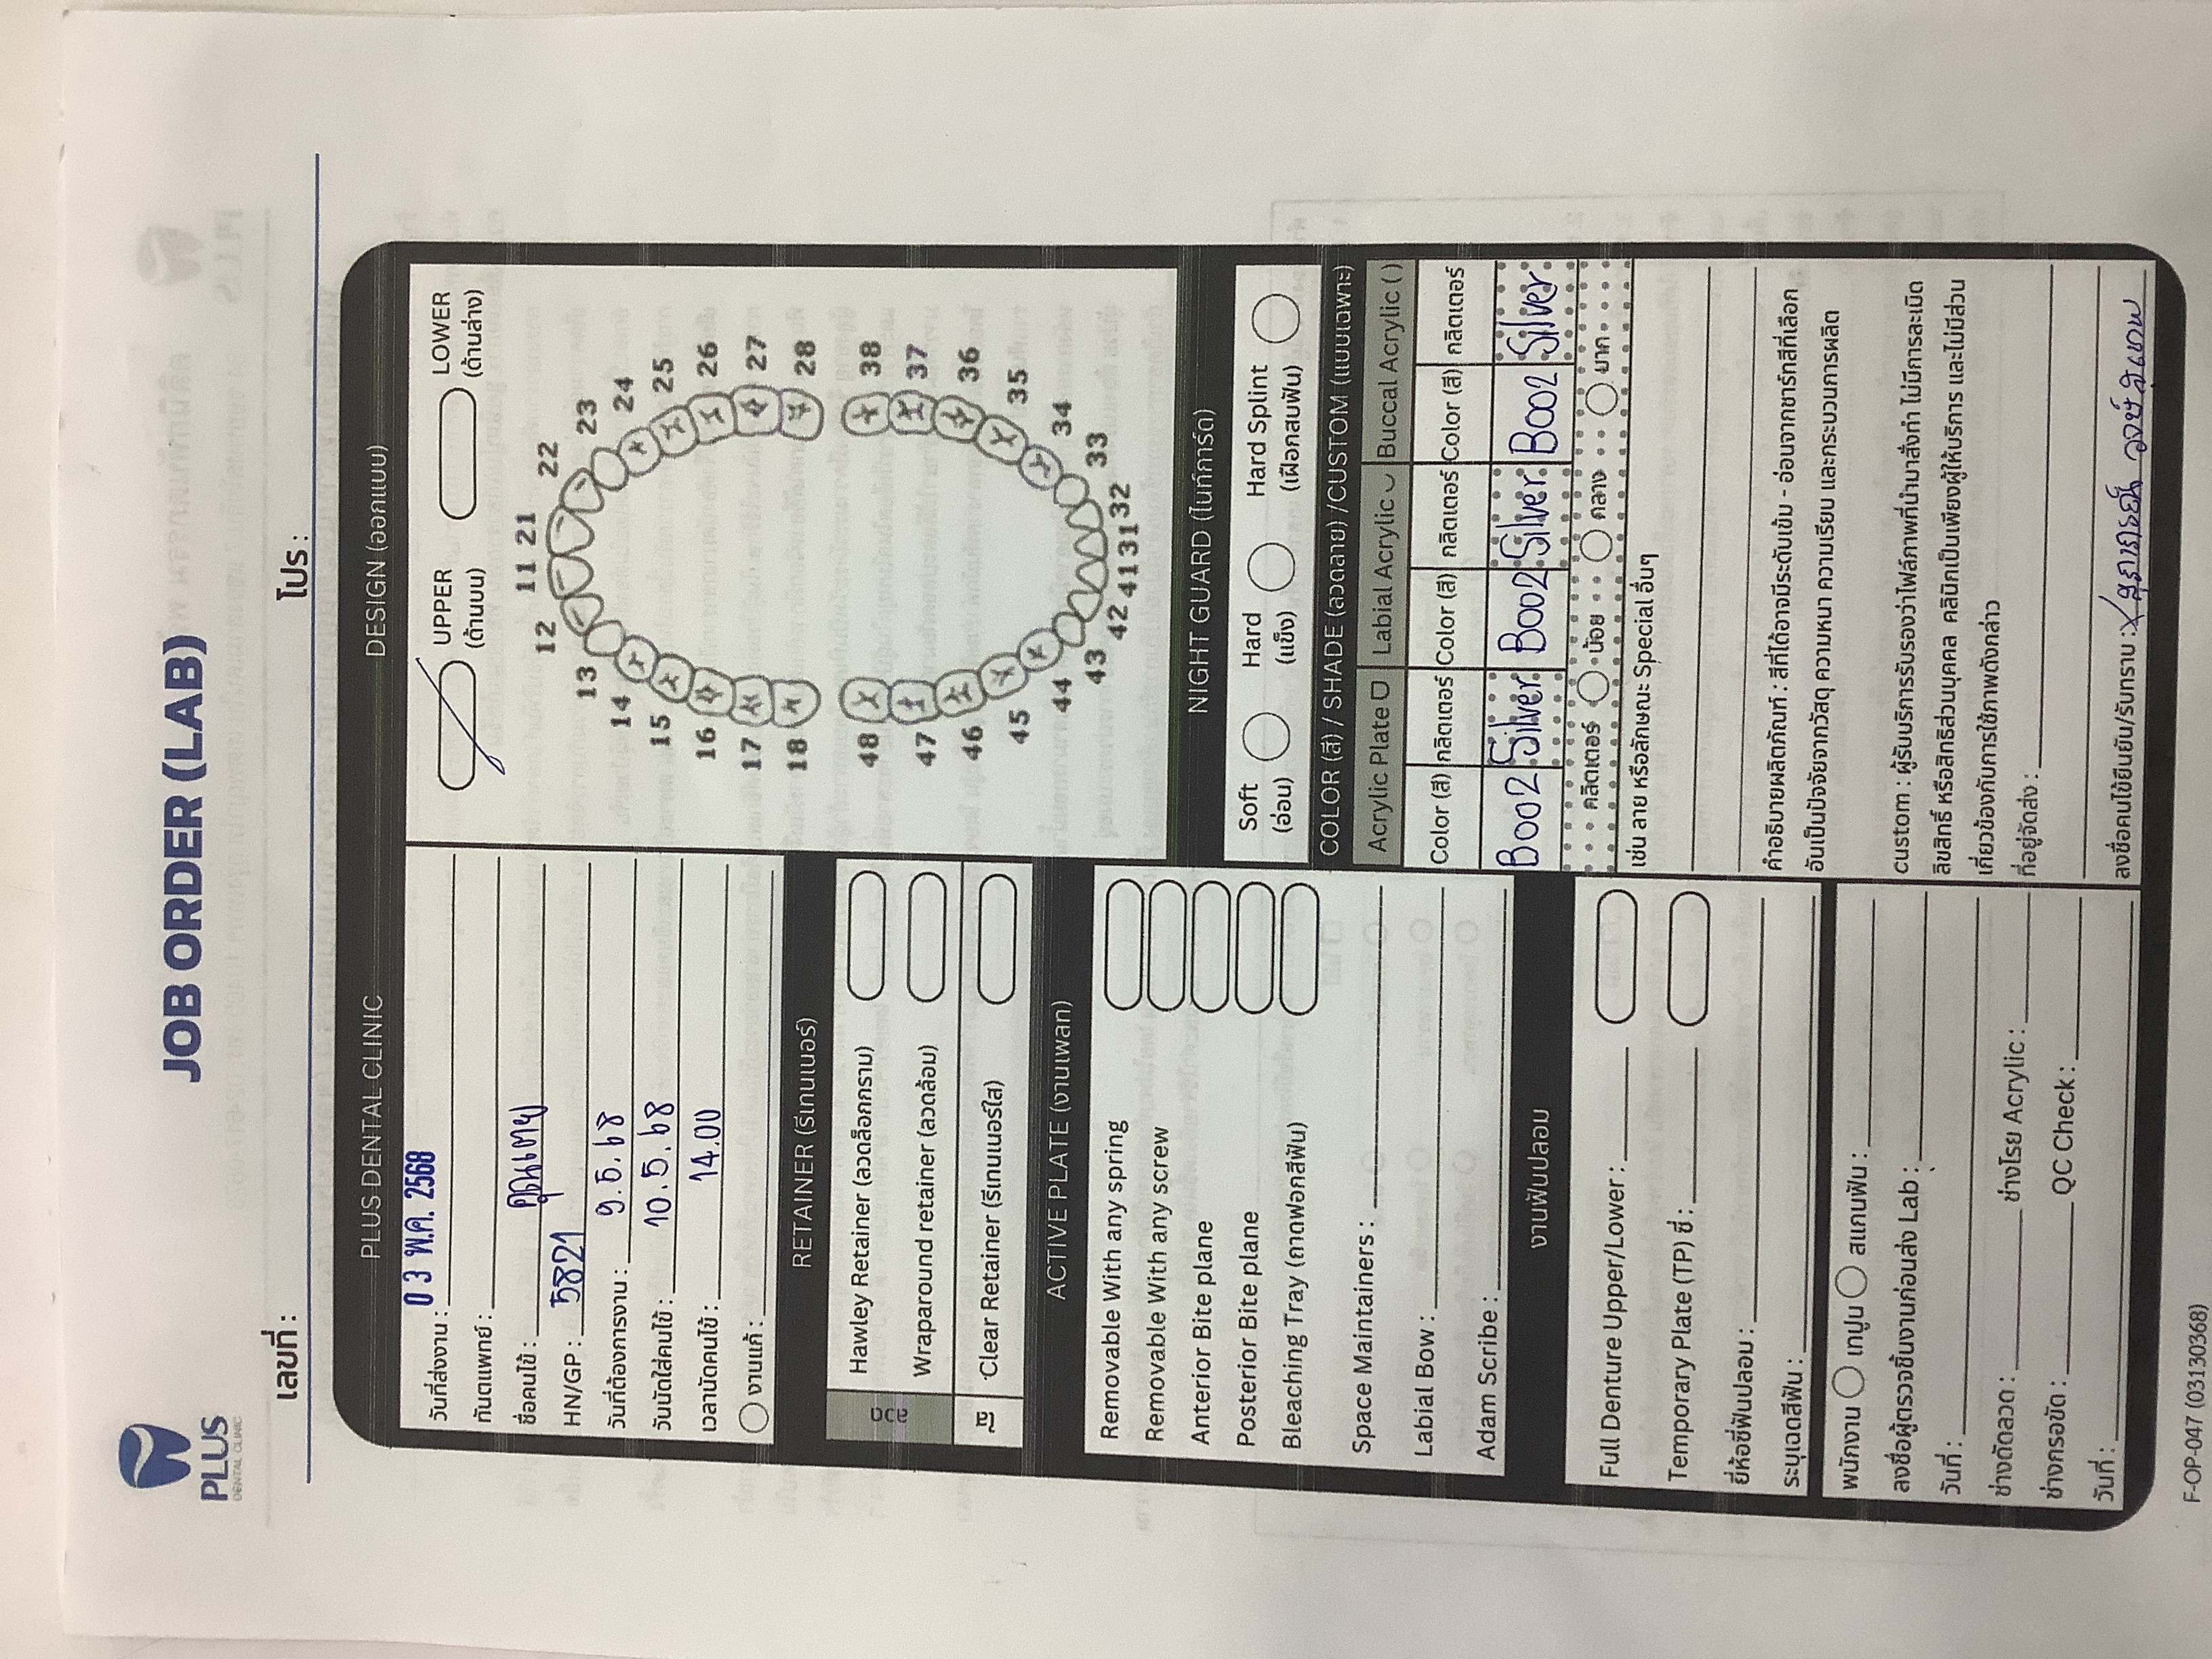 PLUS
DENTAL CLINIC
JOB ORDER (LAB)
เลขที่ :
โปร :
PLUS DENTAL CLINIC
วันที่ส่งงาน : 03 พ.ค. 2568
ทันตแพทย์ :
ชื่อคนไข้ : คุณเตย
HN/GP : 5821
วันที่ต้องการงาน : 9.5.68
วันนัดใส่คนไข้ : 10.5.68
เวลานัดคนไข้ : 14.00
งานแก้ :
RETAINER (รีเทนเนอร์)
ลวด
Hawley Retainer (ลวดล็อกกราม)
Wraparound retainer (ลวดล้อม)
ใส
Clear Retainer (รีเทนเนอร์ใส)
ACTIVE PLATE (งานเพลท)
Removable With any spring
Removable With any screw
Anterior Bite plane
Posterior Bite plane
Bleaching Tray (ถาดฟอกสีฟัน)
Space Maintainers :
Labial Bow :
Adam Scribe :
งานฟันปลอม
Full Denture Upper/Lower :
Temporary Plate (TP) ซี่ :
ยี่ห้อซี่ฟันปลอม :
ระบุเฉดสีฟัน :
พนักงาน เทปูน สแกนฟัน :
ลงชื่อผู้ตรวจชิ้นงานก่อนส่ง Lab :
วันที่ :
ช่างดัดลวด : ช่างโรย Acrylic :
ช่างกรอขัด : QC Check :
วันที่ :
DESIGN (ออกแบบ)
UPPER LOWER
(ด้านบน) (ด้านล่าง)
11 21
12 22
13 23
14 24
15 25
16 26
17 27
18 28
48 38
47 37
46 36
45 35
44 34
43 33
42 41 31 32
NIGHT GUARD (ไนท์การ์ด)
Soft Hard Hard Splint
(อ่อน) (แข็ง) (เฝือกสบฟัน)
COLOR (สี) / SHADE (ลวดลาย) /CUSTOM (แบบเฉพาะ)
Acrylic Plate Labial Acrylic Buccal Acrylic ( )
Color (สี) กลิตเตอร์ Color (สี) กลิตเตอร์ Color (สี) กลิตเตอร์
B002 Silver B002 Silver B002 Silver
คลิตเตอร์ น้อย กลาง มาก
เช่น ลาย หรือลักษณะ Special อื่นๆ
คำอธิบายผลิตภัณฑ์ : สีที่ได้อาจมีระดับเข้ม - อ่อนจากชาร์ทสีที่เลือก
อันเป็นปัจจัยจากวัสดุ ความหนา ความเรียบ และกระบวนการผลิต
custom : ผู้รับบริการรับรองว่าไฟล์ภาพที่นำมาสั่งทำ ไม่มีการละเมิด
ลิขสิทธิ์ หรือสิทธิส่วนบุคคล คลินิกเป็นเพียงผู้ให้บริการ และไม่มีส่วน
เกี่ยวข้องกับการใช้ภาพดังกล่าว
ที่อยู่จัดส่ง :
ลงชื่อคนไข้ยืนยัน/รับทราบ : สุภาภรณ์
F-OP-047 (03130368)